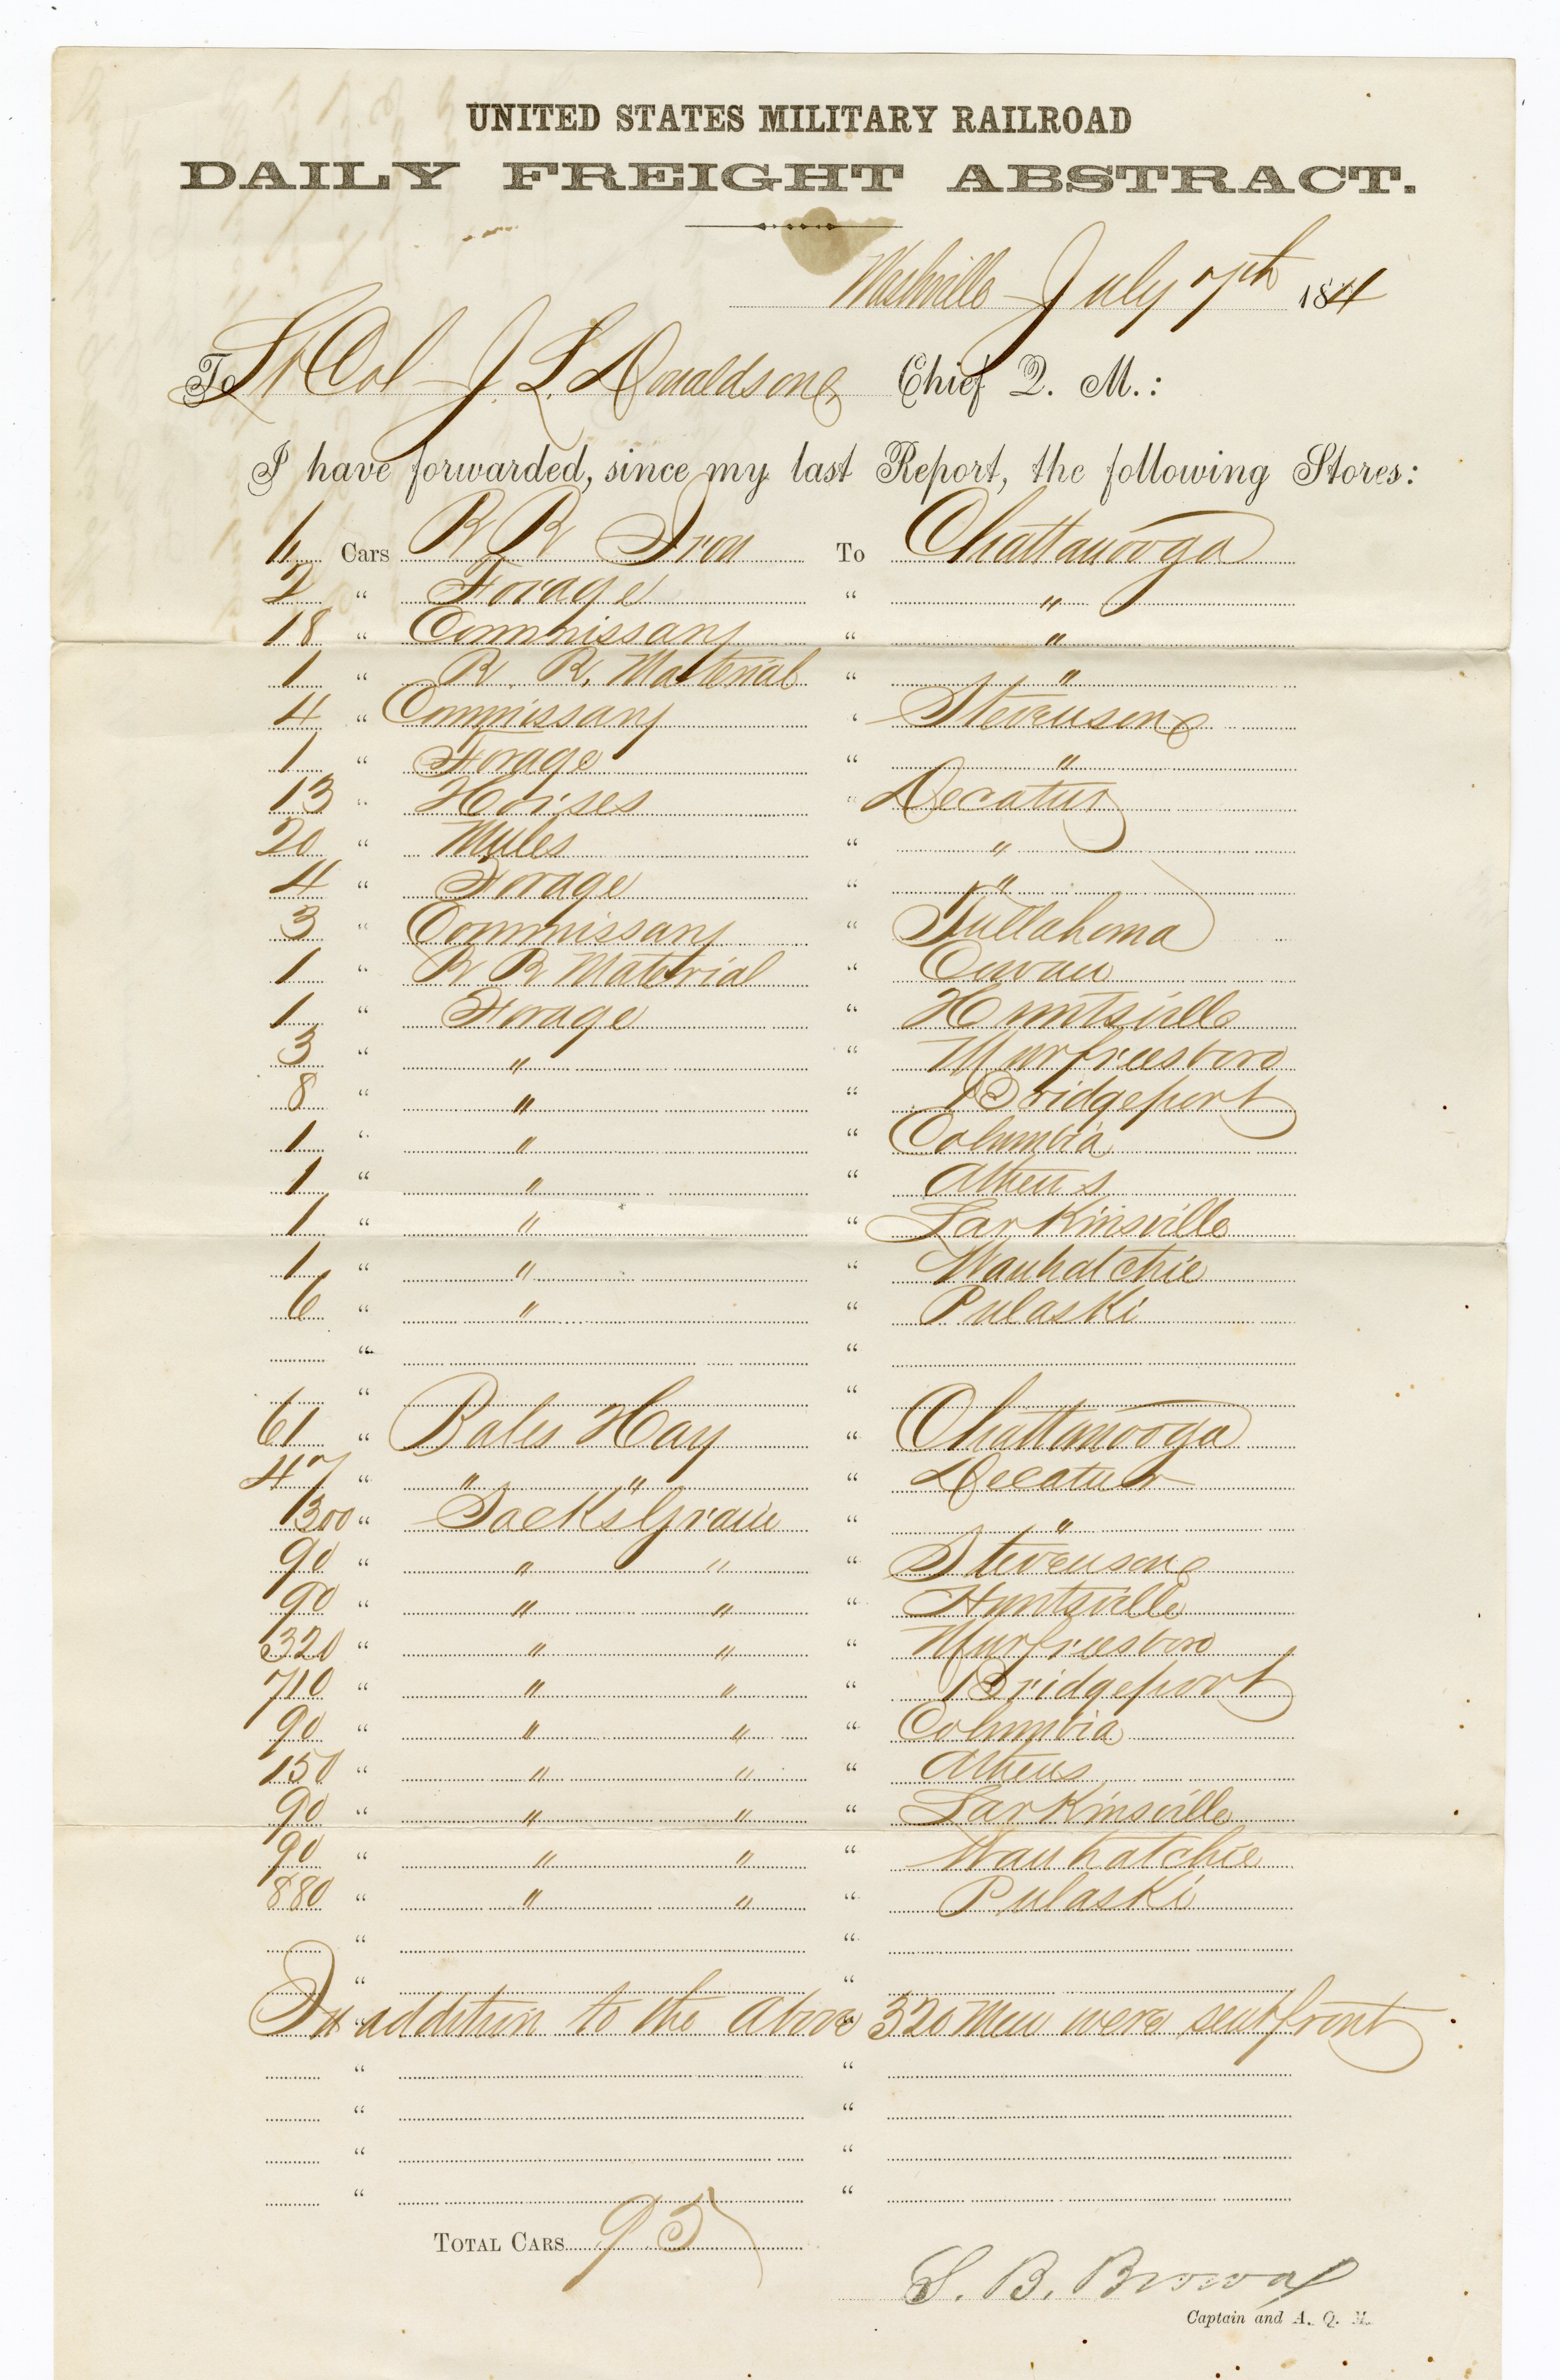 UNITED STATES MILITARY RAILROAD
DAILY FREIGHT ABSTRACT.
Nashville July 7th 1864
To Lt Col J. L. Donaldson Chief Q. M.:
I have forwarded, since my last Report, the following Stores:
6 Cars R R Iron To Chattanooga
2 " Forage " "
18 " Commissary " "
1 " R. R. Material " "
4 " Commissary " Stevenson
1 " Forage " "
13 " Horses " Decatur
20 " Mules " "
4 " Forage " "
3 " Commissary " Tullahoma
1 " R R Material " Cowan
1 " Forage " Huntsville
3 " " " Murfreesboro
8 " " " Bridgeport
1 " " " Columbia
1 " " " Athens
1 " " " Larkinsville
1 " " " Wauhatchie
6 " " " Pulaski
" "
" "
61 " Bales Hay " Chattanooga
47 " " " " Decatur
1300 " Sacks Grain " "
90 " " " " Stevenson
90 " " " " Huntsville
320 " " " " Murfreesboro
710 " " " " Bridgeport
90 " " " " Columbia
150 " " " " Athens
90 " " " " Larkinsville
90 " " " " Wauhatchie
880 " " " " Pulaski
" "
" "
In addition to the above 320 Men were sent front
" "
" "
" "
" "
TOTAL CARS 95
S. B. Brown
Captain and A. Q. M.